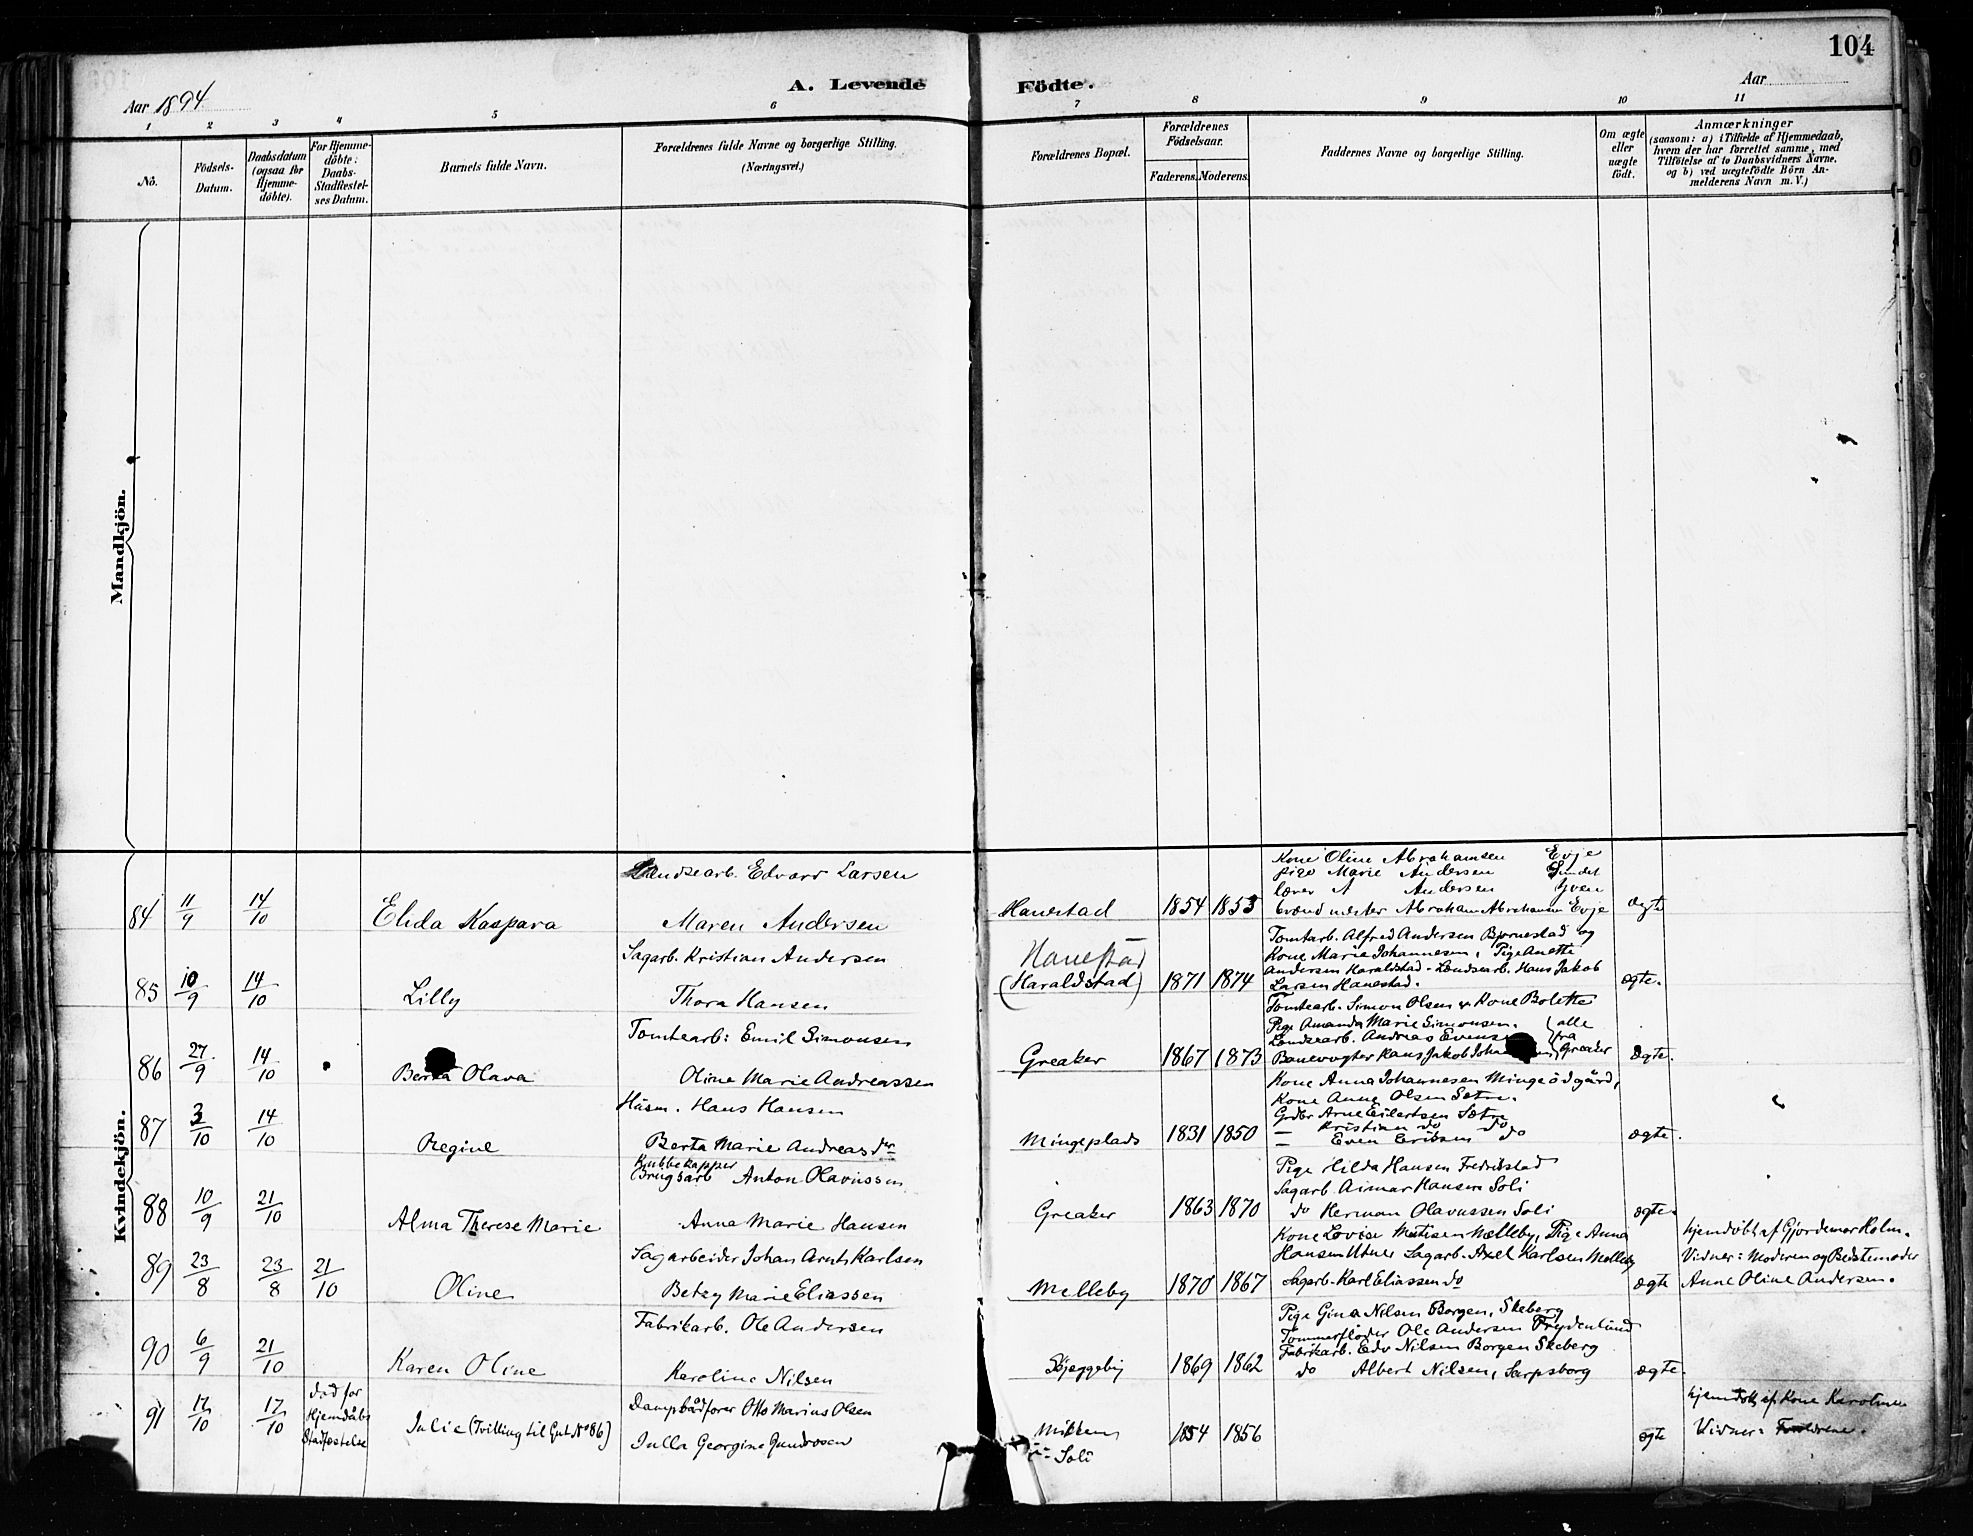 104
Aar 1894
A. Levende Födte.
Aar
1 2 3 4 5 6 7 8 9 10 11
No.
Födsels-Datum.
Daabsdatum (ogsaa for Hjemme-döbte).
For Hjemme-döbte: Daabs-Stadfæstel-ses Datum.
Barnets fulde Navn.
Forældrenes fulde Navne og borgerlige Stilling. (Næringsvei.)
Forældrenes Bopæl.
Forældrenes Födselsaar.
Faderens. Moderens.
Faddernes Navne og borgerlige Stilling.
Om ægte eller uægte födt.
Anmærkninger
(saasom: a) i Tilfælde af Hjemmedaab,
hvem der har forrettet samme, med
Tilföielse af to Daabsvidners Navne,
og b) ved uægtefödte Börn An-
melderens Navn m. V.)
Mandkjön.
Kvindekjön.
84 11/9 14/10 Elida Kaspara
Lændsearb. Edvard Larsen
Maren Andersen
Hanestad 1854 1853
Kone Oline Abrahamsen Evje
pige Marie Andersen
lærer A Andersen
Abraham Abrahamsen Evje
ægte
85 10/9 14/10 Lilly
Sagarb. Kristian Andersen
Thora Hansen
Hanestad
(Haraldstad) 1871 1874
Tomtarb. Alfred Andersen Bjørnestad og
Kone Marie Johannesen, Pige Anette
Andersen Haraldstad - Lændsearb. Hans Jakob
Larsen Hanestad.
ægte.
86 27/9 14/10 Berta Olava
Tomtearb: Emil Simonsen
Oline Marie Andreassen
Greaker 1867 1873
Tomtearb. Simon Olsen & Kone Bolette
Pige Amanda Marie Simonsen. alle
Lændsearb. Andreas fra
Banevogter Hans Jakob Greaker
ægte.
87 3/10 14/10 Regine
Husm. Hans Hansen
Berta Marie Andreasdr
Mingeplads 1831 1850
Kone Anna Johannesen Mingeødgård,
Kone Anne Olsen Sætre.
Grdbr Arne Eilertsen Sætre
— Kristian do do
— Even Eriksen do
ægte.
88 10/9 21/10 Alma Therese Marie
Knubbekapper
Brugsarb Anton Olavussen
Anna Marie Hansen
Greaker 1863 1870
Pige Hilda Hansen Fredrikstad
Sagarb. Aimar Hansen Soli
do Herman Olavussen Soli
ægte.
89 23/8 23/8 21/10 Oline
Sagarbeider Johan Arnt Karlsen
Betzy Marie Eliassen
Melleby 1870 1867
Kone Lovise Matisen Melleby, Pige Anna
Hansen Utne Sagarb. Axel Karlsen Melleby
Sagarb. Karl Eliassen do
ægte
hjemdöbt af Gjordemor Holm.
Vidner: Moderen og Bedstemoder
Anne Oline Andersen.
90 6/9 21/10 Karen Oline
Fabrikarb. Ole Andersen
Karoline Nilsen
Skjeggeby 1869 1862
Pige Gina Nilsen Borgen, Skeberg
Tømmerfløder Ole Andersen Frydenlund
Fabrikarb. Edv Nilsen Borgen Skeberg
do Albert Nilsen, Sarpsborg
ægte.
91 17/10 17/10 død for Hjemdåbs Stadfæstelse
Julie (Tvilling til Gut No 86)
Dampbådfører Otto Marius Olsen
Julla Georgine Gundrosen
Soli 1854 1856
ægte
hjemdöbt af Kone Karoline
Vidner: Forældrene.